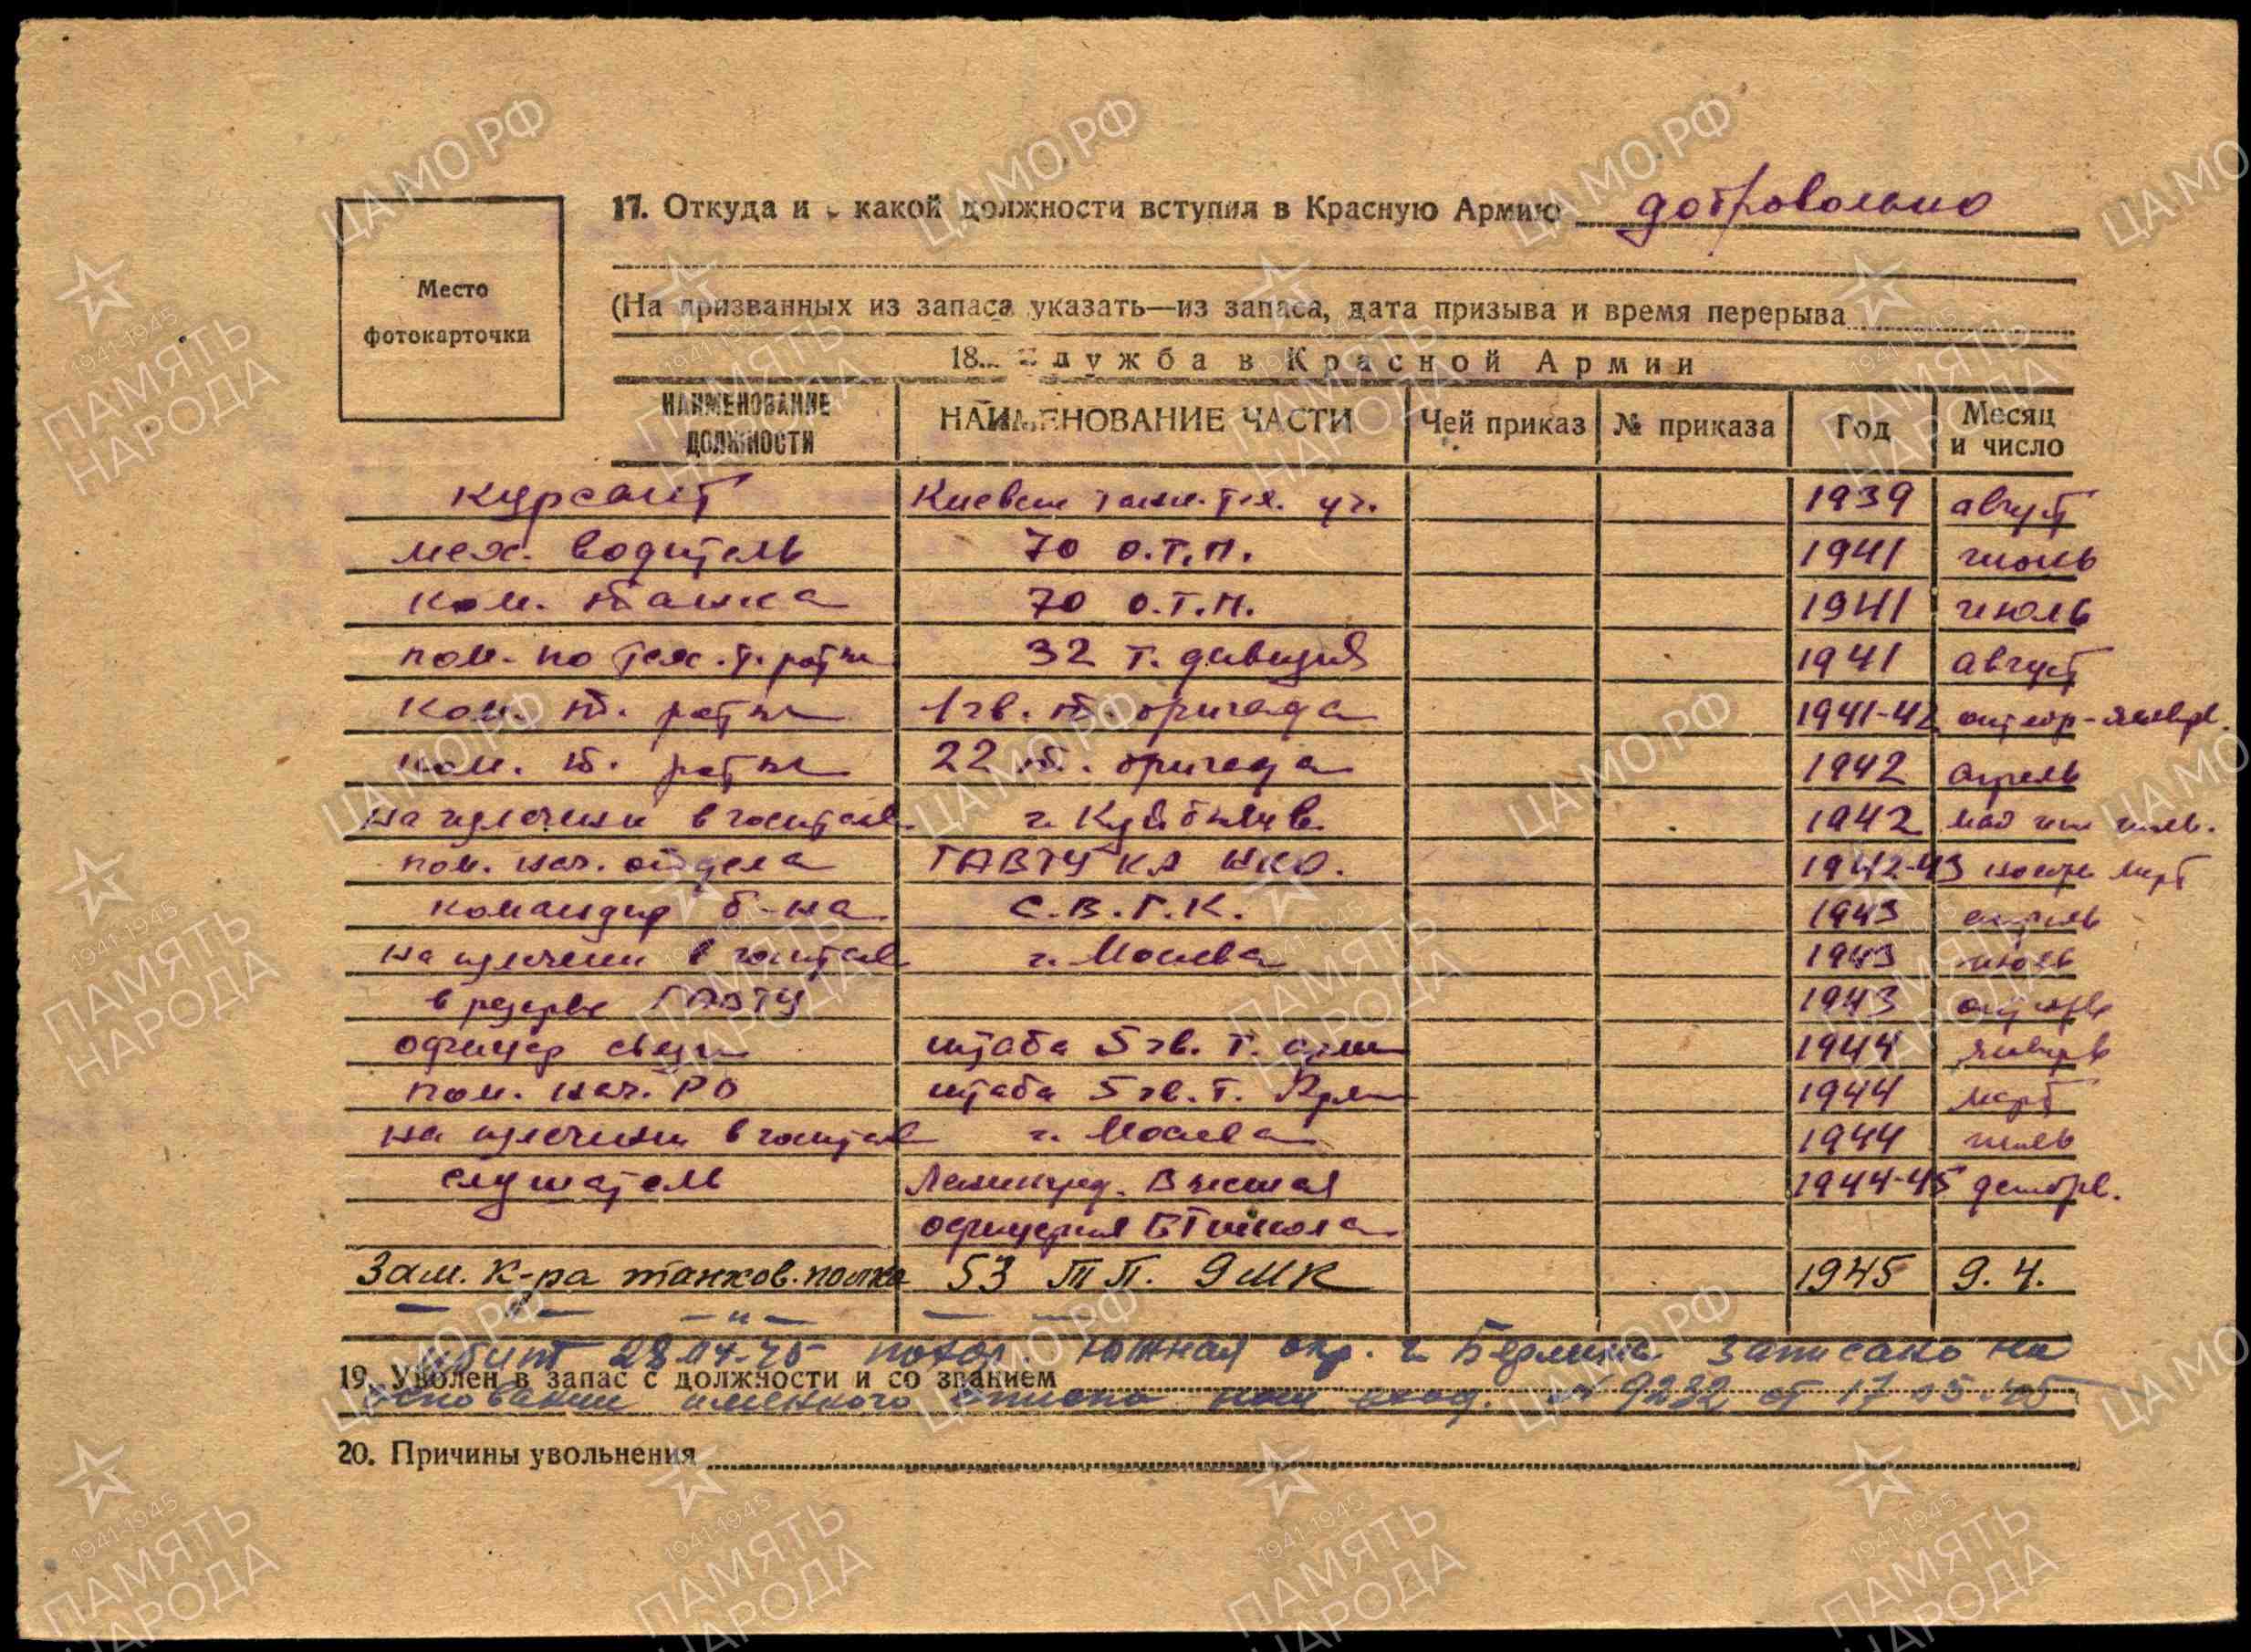 17. Откуда и с какой должности вступил в Красную Армию добровольно
(На призванных из запаса указать—из запаса, дата призыва и время перерыва
Место
фотокарточки
18. Служба в Красной Армии
НАИМЕНОВАНИЕ ДОЛЖНОСТИ НАИМЕНОВАНИЕ ЧАСТИ Чей приказ № приказа Год Месяц и число
курсант Киевск танк. тех. уч. 1939 август
мех. водитель 70 о.т.п. 1941 июнь
ком. танка 70 о.т.п. 1941 июль
пом. по тех. т. роты 32 т. дивизия 1941 август
ком. т. роты 1 гв. т. бригада 1941-42 октябр-январь.
ком. т. роты 22 т. бригада 1942 апрель
на излечении в госпитале г. Куйбышев 1942 май июль.
пом. нач. отдела ГАБТУ КА НКО. 1942-43 март
командир б-на С.В.Г.К. 1943 апрель
на излечении в госпитале г. Москва 1943 июль
в резерве ГАБТУ 1943 октябрь
офицер связи штаба 5 гв. т. арм 1944 январь
пом. нач. РО штаба 5 гв. т. Арм 1944 март
на излечении в госпитале г. Москва 1944 июль
слушатель Ленинград. Высшая 1944-45 декабрь.
офицерская БТ школа
Зам. к-ра танков. полка 53 ТП. 9 МК 1945 9.4.
— " — — " — — —
убит 28.04.45 похор. южная окр. г. Берлина записано на
19. Уволен в запас с должности и со званием
основании именного списка № 9232 от 17.05.45
20. Причины увольнения
ЦАМО.РФ
1941-1945
ПАМЯТЬ
НАРОДА